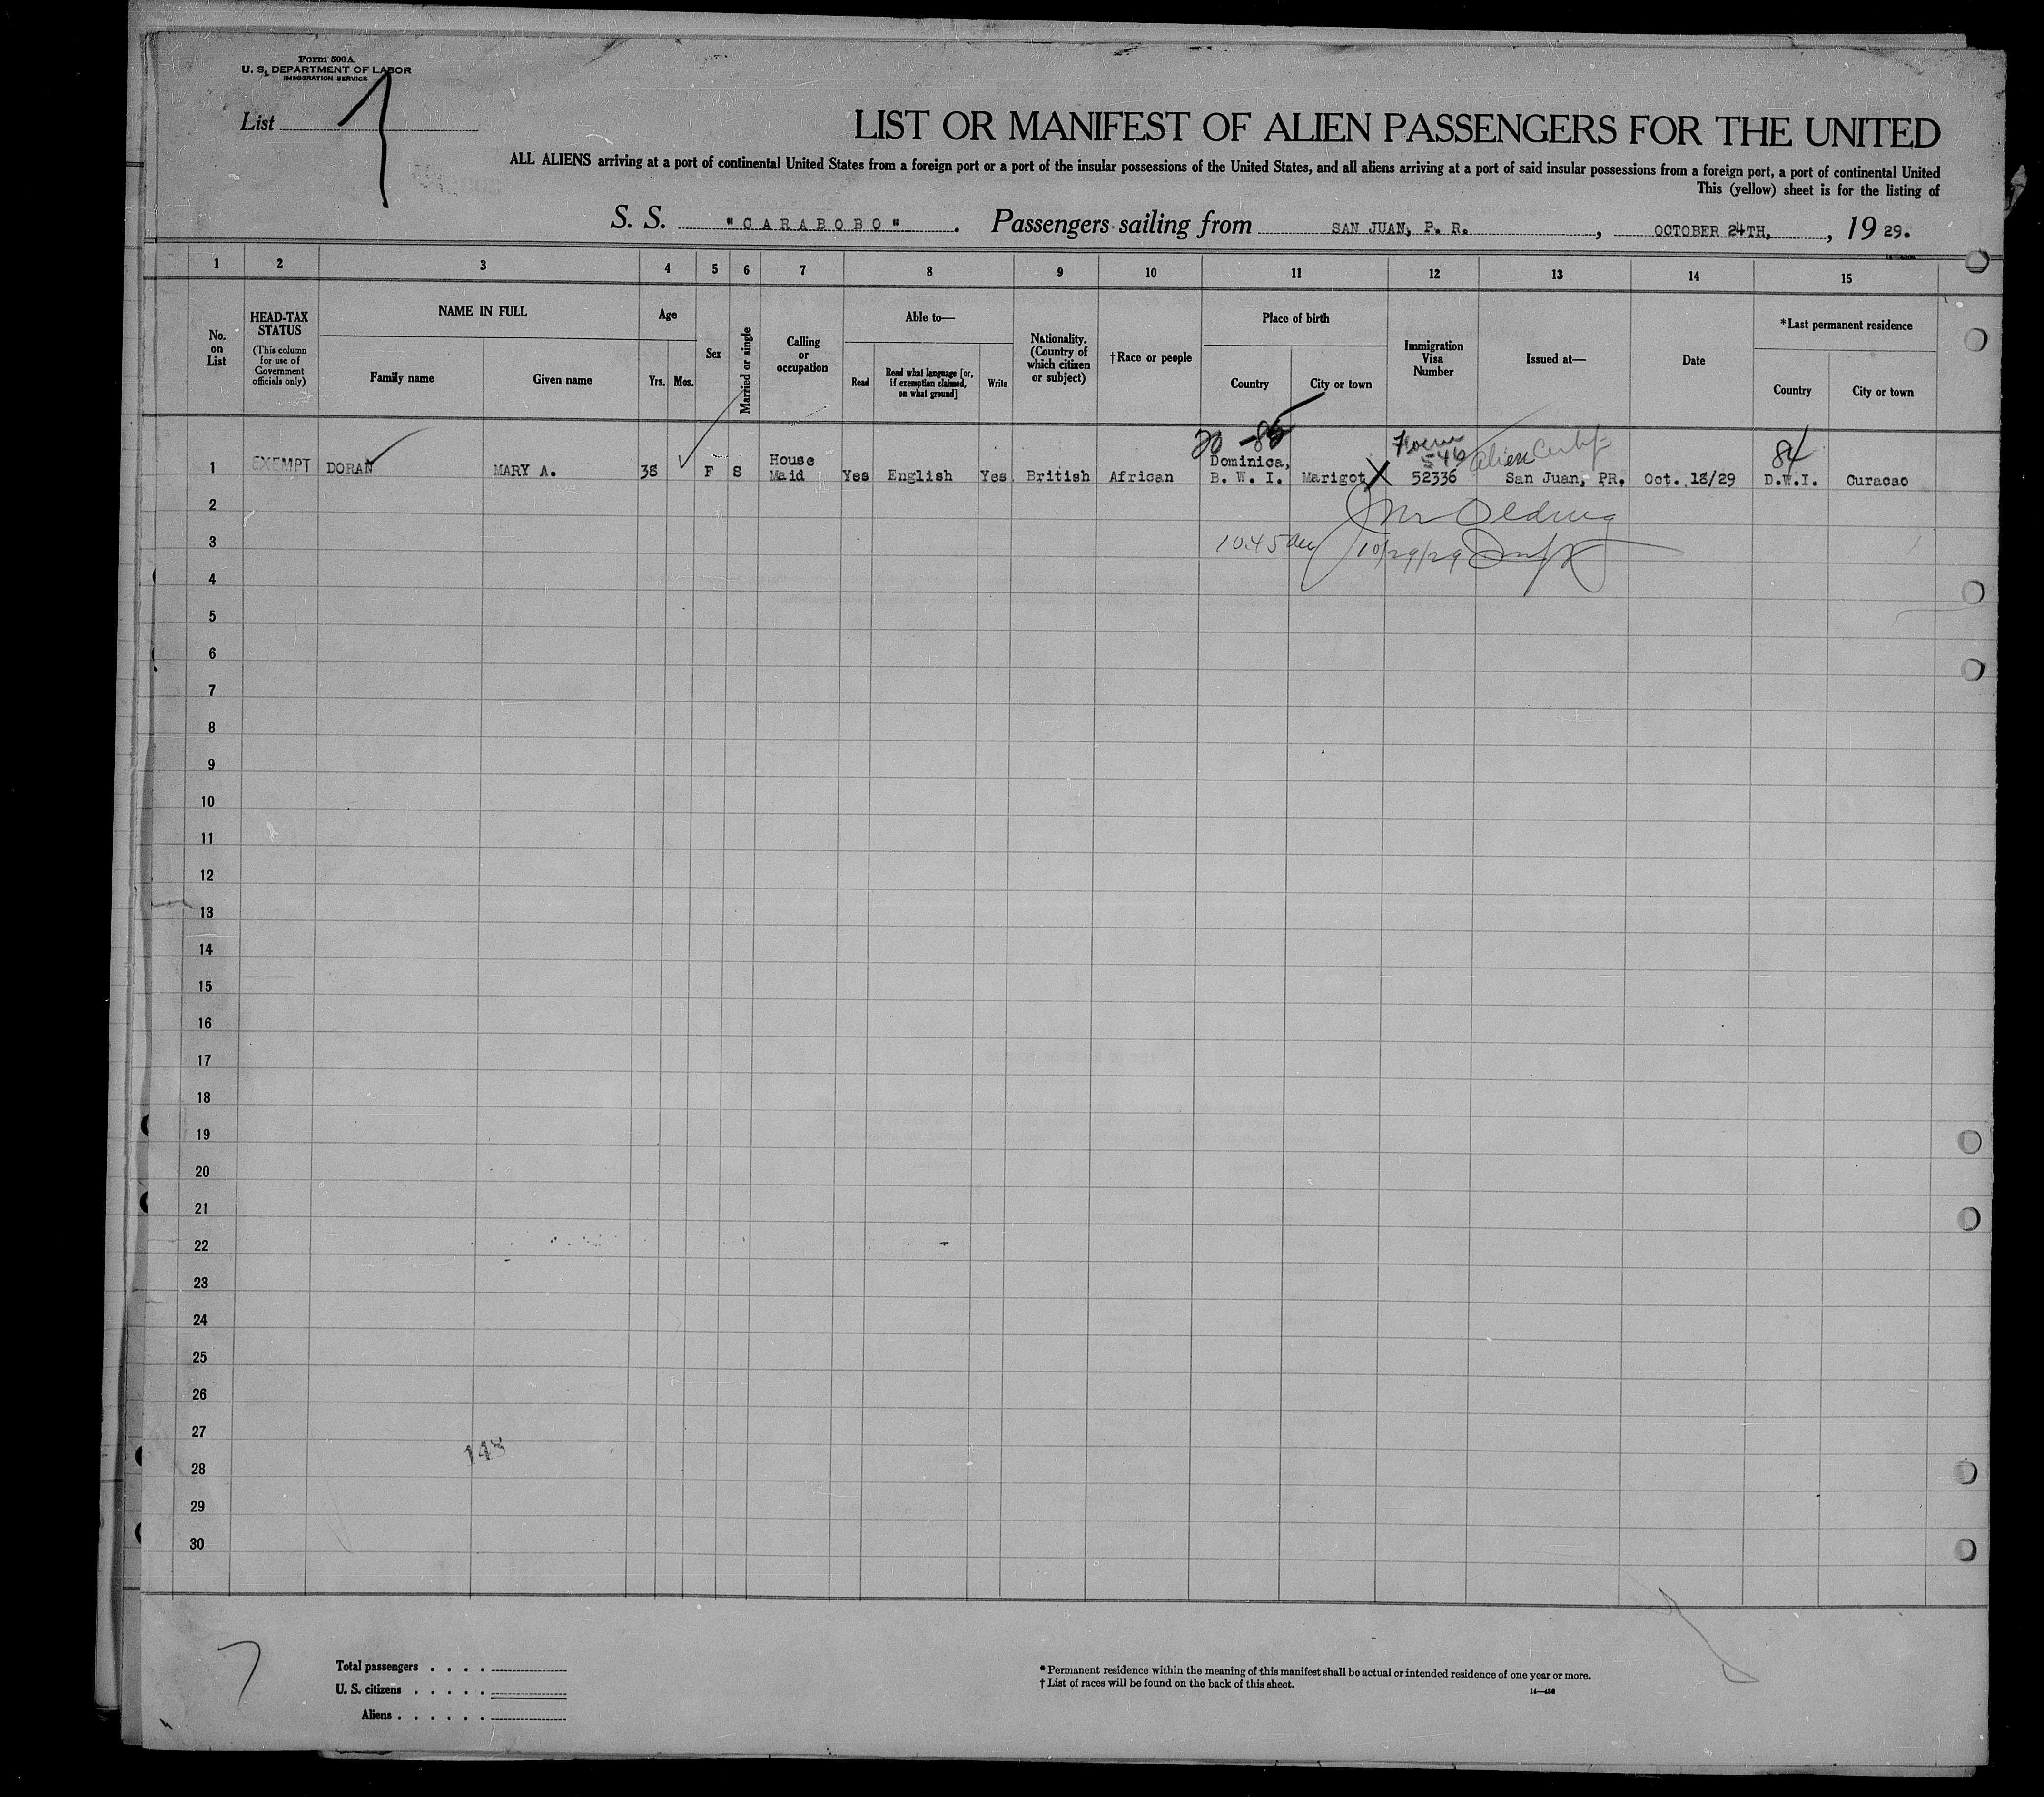 Form 500A
U. S. DEPARTMENT OF LABOR
IMMIGRATION SERVICE
List
LIST OR MANIFEST OF ALIEN PASSENGERS FOR THE UNITED
ALL ALIENS arriving at a port of continental United States from a foreign port or a port of the insular possessions of the United States, and all aliens arriving at a port of said insular possessions from a foreign port, a port of continental United
This (yellow) sheet is for the listing of
S. S. "CARABOBO". Passengers sailing from SAN JUAN, P. R., OCTOBER 24TH, , 19 29.
1 2 3 4 5 6 7 8 9 10 11 12 13 14 15
No. on List
HEAD-TAX STATUS
(This column for use of Government officials only)
NAME IN FULL
Family name
Given name
Age
Yrs.
Mos.
Sex
Married or single
Calling or occupation
Able to—
Read
Read what language [or, if exemption claimed, on what ground]
Write
Nationality. (Country of which citizen or subject)
†Race or people
Place of birth
Country
City or town
Immigration Visa Number
Issued at—
Date
*Last permanent residence
Country
City or town
20 85
Form 546
Alien Certif
84
1 EXEMPT DORAN MARY A. 38 F S House Maid Yes English Yes British African Dominica, B. W. I. Marigot X 52336 San Juan, PR. Oct. 18/29 D.W.I. Curacao
2
3 10.45 10/29/29
4
5
6
7
8
9
10
11
12
13
14
15
16
17
18
19
20
21
22
23
24
25
26
27
148
28
29
30
7
Total passengers . . . .
U. S. citizens . . . . .
Aliens . . . . . .
* Permanent residence within the meaning of this manifest shall be actual or intended residence of one year or more.
† List of races will be found on the back of this sheet.
14—430